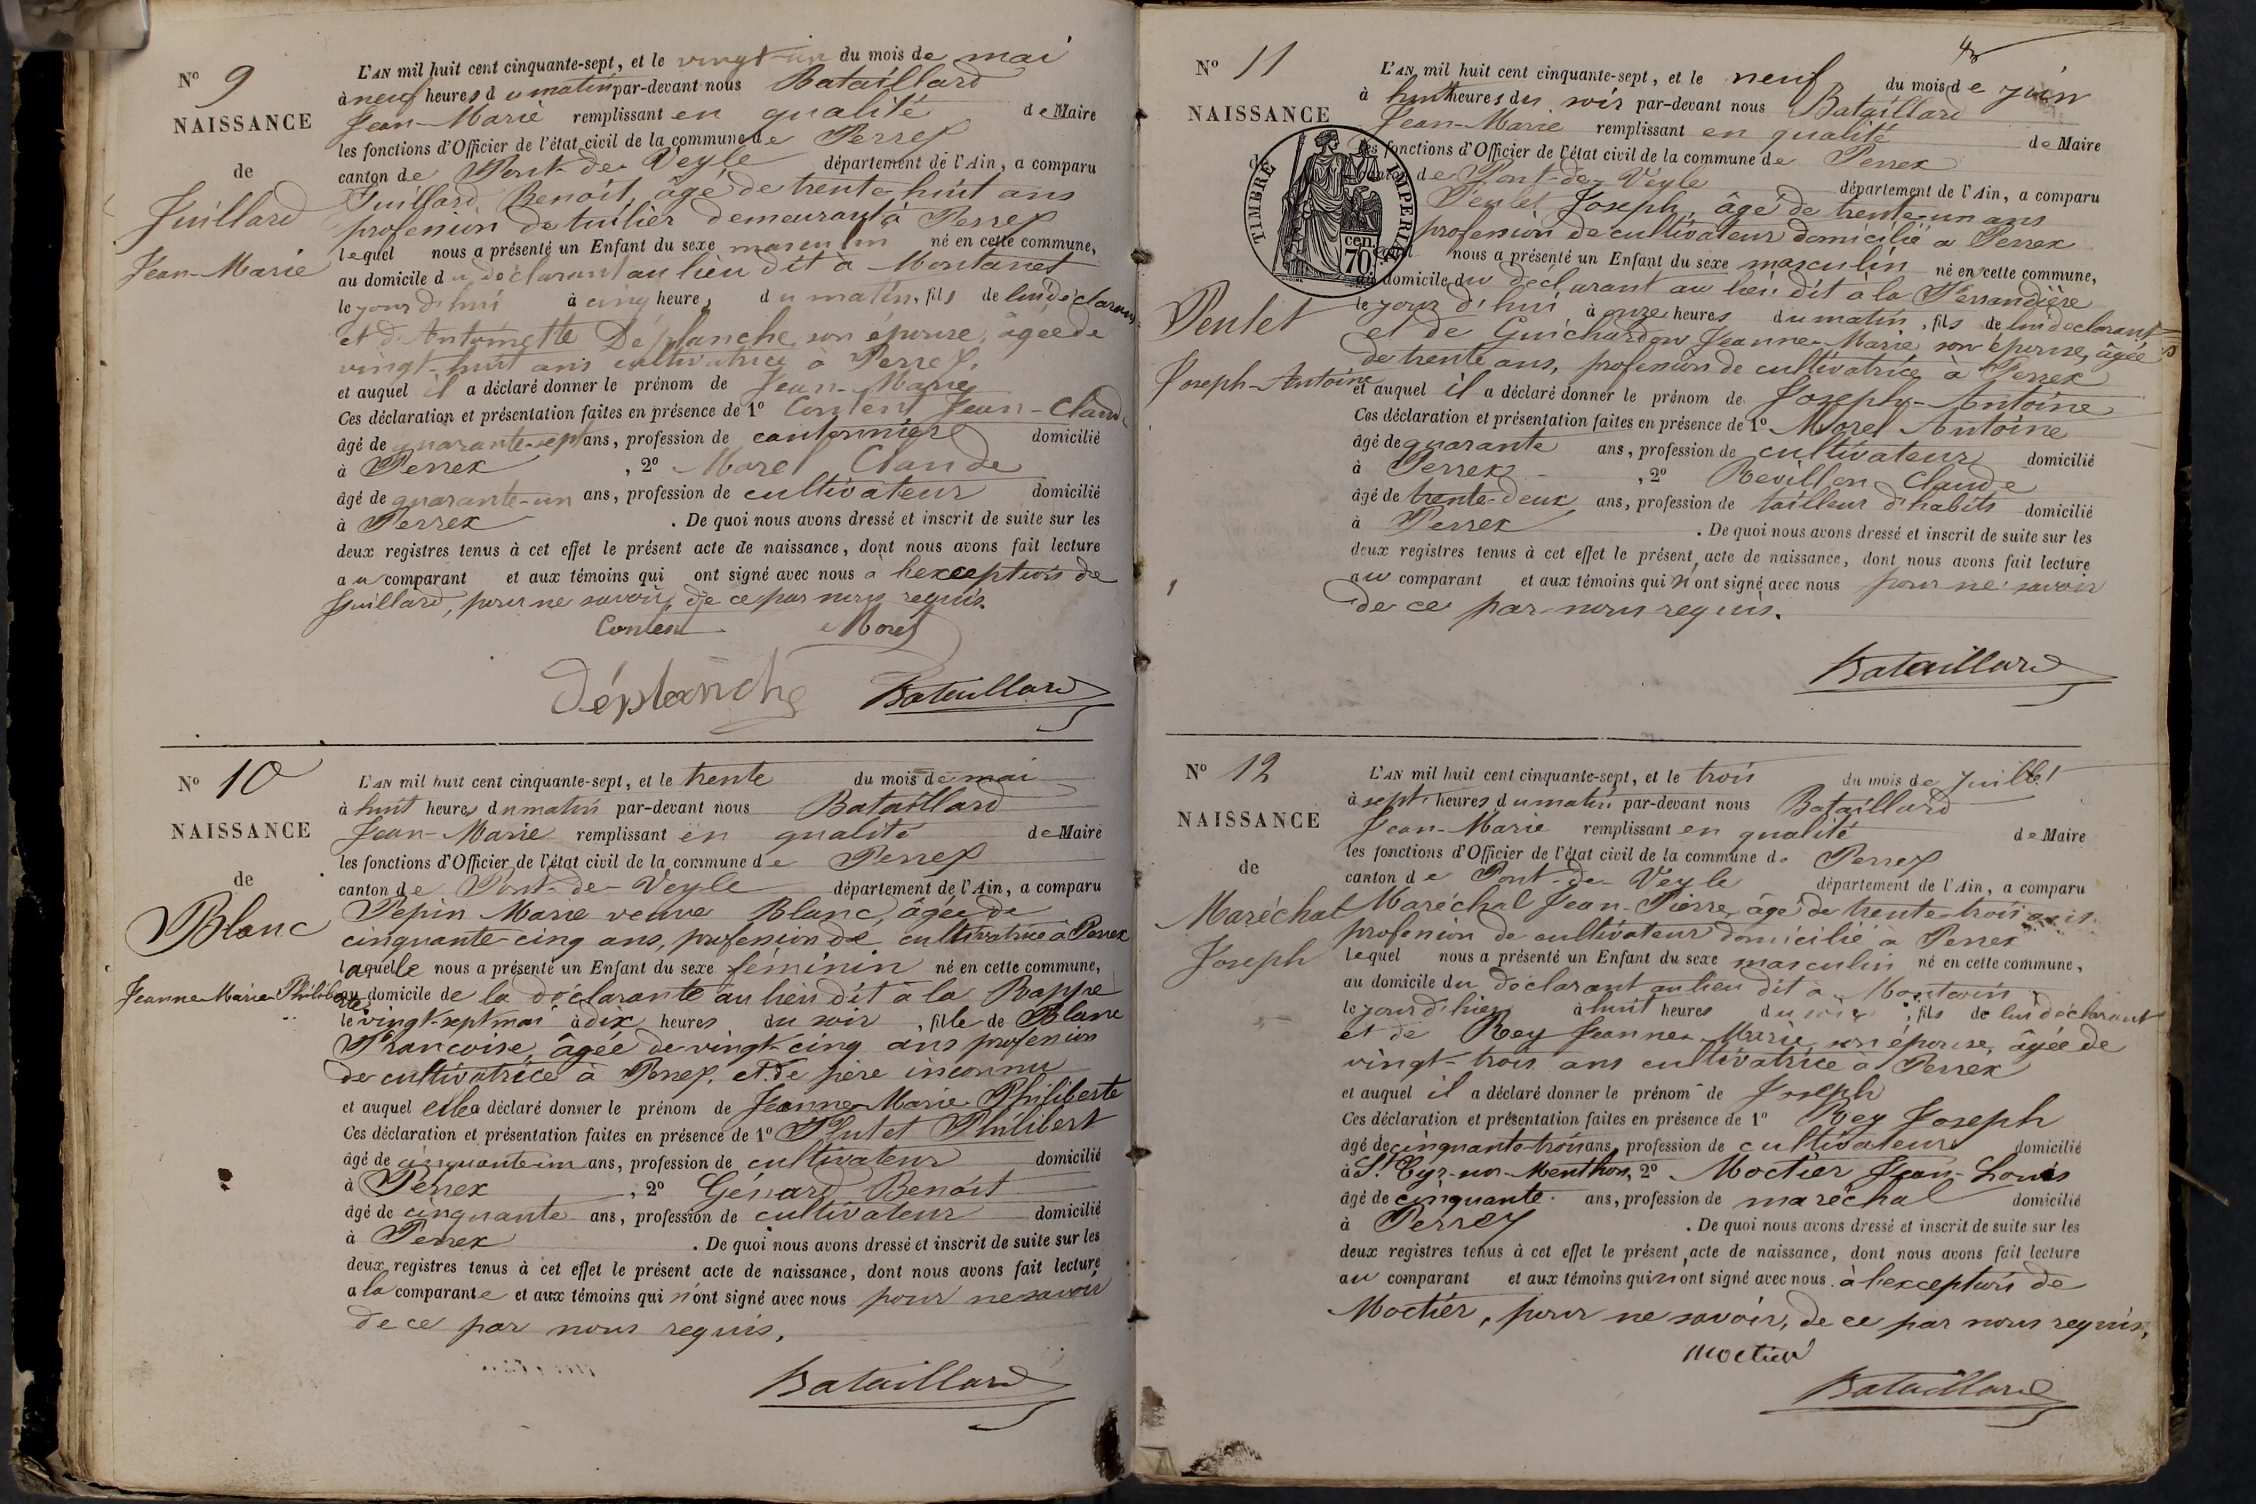 N° 9
NAISSANCE
de
Juillard
Jean-Marie
L'AN mil huit cent cinquante-sept, et le vingt-un du mois de mai
à neuf heures du matin par-devant nous Bataillard
Jean-Marie remplissant en qualité de Maire
les fonctions d'Officier de l'état civil de la commune de Perrex
canton de Pont-de-Veyle département de l'Ain, a comparu
Juillard Benoit, âgé de trente-huit ans
profession de tuilier demeurant à Perrex
lequel nous a présenté un Enfant du sexe masculin né en cette commune,
au domicile du déclarant au lieu dit à Montanet
le jour d'hui à cinq heures du matin, fils de lui déclarant
et d'Antoinette Déplanche son épouse, âgée de
vingt-huit ans cultivatrice à Perrex.
et auquel il a déclaré donner le prénom de Jean-Marie
Ces déclaration et présentation faites en présence de 1° Content Jean-Claude
âgé de quarante-sept ans, profession de cantonnier domicilié
à Perrex, 2° Morel Claude
âgé de quarante-un ans, profession de cultivateur domicilié
à Perrex. De quoi nous avons dressé et inscrit de suite sur les
deux registres tenus à cet effet le présent acte de naissance, dont nous avons fait lecture
au comparant et aux témoins qui ont signé avec nous à l'exception de
Juillard, pour ne savoir, de ce par nous requis.
Content Morel
Déplanche Bataillard
N° 10
NAISSANCE
de
Blanc
Jeanne Marie Philiberte
L'AN mil huit cent cinquante-sept, et le trente du mois de mai
à huit heures du matin par-devant nous Bataillard
Jean-Marie remplissant en qualité de Maire
les fonctions d'Officier de l'état civil de la commune de Perrex
canton de Pont-de-Veyle département de l'Ain, a comparu
Pepin Marie veuve Blanc, âgée de
cinquante-cinq ans, profession de cultivatrice à Perrex
laquelle nous a présenté un Enfant du sexe féminin né en cette commune,
au domicile de la déclarante au lieu dit à la Rappe
le vingt-sept mai à dix heures du soir, fille de Blanc
Francoise, âgée de vingt-cinq ans profession
de cultivatrice à Perrex, et de père inconnu
et auquel elle a déclaré donner le prénom de Jeanne Marie Philiberte
Ces déclaration et présentation faites en présence de 1° Plutet Philibert
âgé de cinquante-un ans, profession de cultivateur domicilié
à Perrex, 2° Génard Benoit
âgé de cinquante ans, profession de cultivateur domicilié
à Perrex. De quoi nous avons dressé et inscrit de suite sur les
deux registres tenus à cet effet le présent acte de naissance, dont nous avons fait lecture
a la comparante et aux témoins qui n'ont signé avec nous pour ne savoir
de ce par nous requis.
Bataillard
N° 11
NAISSANCE
de
Peulet
Joseph-Antoine
TIMBRE IMPERIAL
70 cen.
L'AN mil huit cent cinquante-sept, et le neuf du mois de juin
à huit heures du soir par-devant nous Bataillard
Jean-Marie remplissant en qualité de Maire
les fonctions d'Officier de l'état civil de la commune de Perrex
canton de Pont-de-Veyle département de l'Ain, a comparu
Peulet Joseph, âgé de trente-un ans
profession de cultivateur domicilié à Perrex
lequel nous a présenté un Enfant du sexe masculin né en cette commune,
au domicile du déclarant au lieu dit à la Ferrandière
le jour d'hui à onze heures du matin, fils de lui déclarant
et de Guichardon Jeanne-Marie son épouse, âgée
de trente ans, profession de cultivatrice à Perrex
et auquel il a déclaré donner le prénom de Joseph-Antoine
Ces déclaration et présentation faites en présence de 1° Morel Antoine
âgé de quarante ans, profession de cultivateur domicilié
à Perrex, 2° Revillon Claude
âgé de trente-deux ans, profession de tailleur d'habits domicilié
à Perrex. De quoi nous avons dressé et inscrit de suite sur les
deux registres tenus à cet effet le présent acte de naissance, dont nous avons fait lecture
au comparant et aux témoins qui n'ont signé avec nous pour ne savoir
de ce par nous requis.
Bataillard
N° 12
NAISSANCE
de
Maréchal
Joseph
L'AN mil huit cent cinquante-sept, et le trois du mois de juillet
à sept heures du matin par-devant nous Bataillard
Jean-Marie remplissant en qualité de Maire
les fonctions d'Officier de l'état civil de la commune de Perrex
canton de Pont-de-Veyle département de l'Ain, a comparu
Maréchal Jean-Pierre, âgé de trente-trois ans
profession de cultivateur domicilié à Perrex
lequel nous a présenté un Enfant du sexe masculin né en cette commune,
au domicile du déclarant au lieu dit à
le jour d'hier à huit heures du soir, fils de lui déclarant
et de Rey Jeanne-Marie son épouse, âgée de
vingt-trois ans cultivatrice à Perrex
et auquel il a déclaré donner le prénom de Joseph
Ces déclaration et présentation faites en présence de 1° Rey Joseph
âgé de cinquante-trois ans, profession de cultivateur domicilié
à St. Cyr-sur-Menthon, 2° Moctier Jean-Louis
âgé de cinquante ans, profession de maréchal domicilié
à Perrex. De quoi nous avons dressé et inscrit de suite sur les
deux registres tenus à cet effet le présent acte de naissance, dont nous avons fait lecture
au comparant et aux témoins qui n'ont signé avec nous à l'exception de
Moctier, pour ne savoir, de ce par nous requis.
Moctier
Bataillard